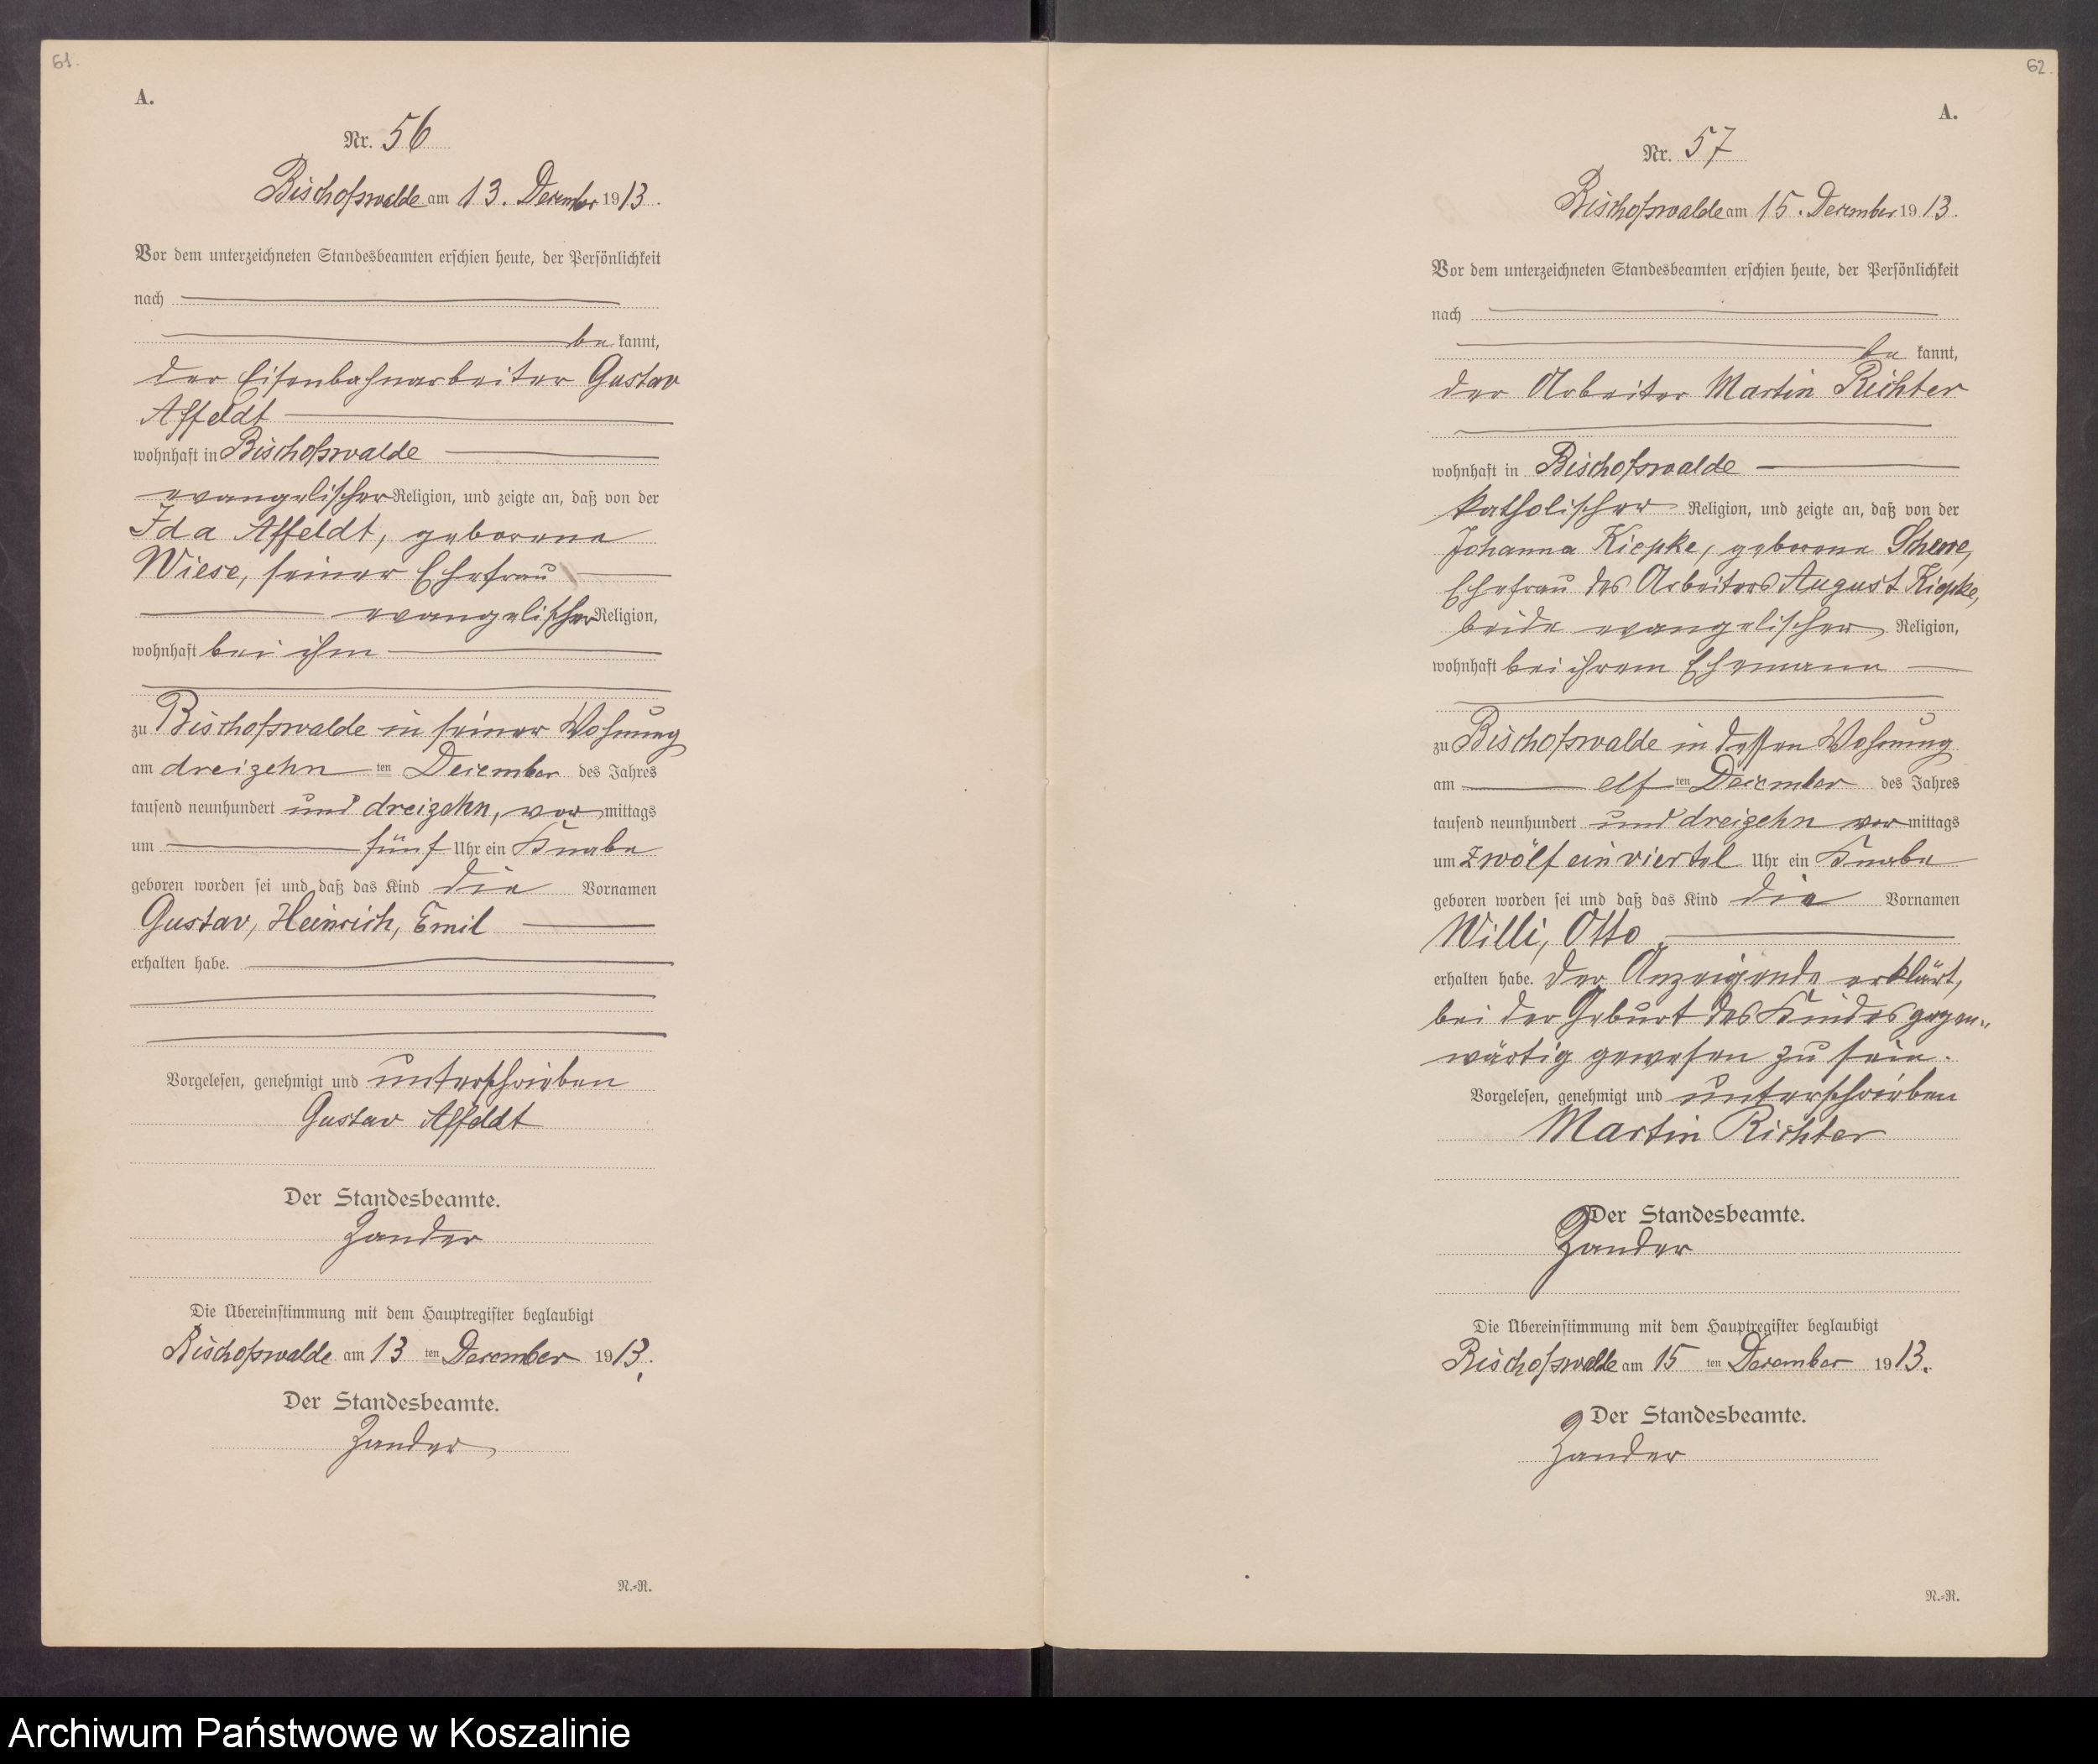 61.
A.
Nr. 56
Bischofswalde am 13. Dezember 1913.
Vor dem unterzeichneten Standesbeamten erschien heute, der Persönlichkeit
nach
be kannt,
der Eisenbahnarbeiter Gustav
Affeldt
wohnhaft in Bischofswalde
evangelischer Religion, und zeigte an, daß von der
Ida Affeldt, geborene
Wiese, seiner Ehefrau
evangelischer Religion,
wohnhaft bei ihm
zu Bischofswalde in seiner Wohnung
am dreizehn ten Dezember des Jahres
tausend neunhundert und dreizehn, vor mittags
um fünf Uhr ein Knabe
geboren worden sei und daß das Kind die Vornamen
Gustav, Heinrich, Emil
erhalten habe.
Vorgelesen, genehmigt und unterschrieben
Gustav Affeldt
Der Standesbeamte.
Zander
Die Übereinstimmung mit dem Hauptregister beglaubigt
Bischofswalde am 13 ten Dezember 1913.
Der Standesbeamte.
Zander
N.-R.
62.
A.
Nr. 57
Bischofswalde am 15. Dezember 1913.
Vor dem unterzeichneten Standesbeamten erschien heute, der Persönlichkeit
nach
be kannt,
der Arbeiter Martin Richter
wohnhaft in Bischofswalde
katholischer Religion, und zeigte an, daß von der
Johanna Kiepke, geborene Schewe,
Ehefrau des Arbeiters August Kiepke,
beide evangelischer Religion,
wohnhaft bei ihrem Ehemann
zu Bischofswalde in dessen Wohnung
am elf ten Dezember des Jahres
tausend neunhundert und dreizehn vor mittags
um zwölf ein viertel Uhr ein Knabe
geboren worden sei und daß das Kind die Vornamen
Willi, Otto
erhalten habe. Der Anzeigende erklärt,
bei der Geburt des Kindes gegen-
wärtig gewesen zu sein.
Vorgelesen, genehmigt und unterschrieben
Martin Richter
Der Standesbeamte.
Zander
Die Übereinstimmung mit dem Hauptregister beglaubigt
Bischofswalde am 15 ten Dezember 1913.
Der Standesbeamte.
Zander
N.-R.
Archiwum Państwowe w Koszalinie